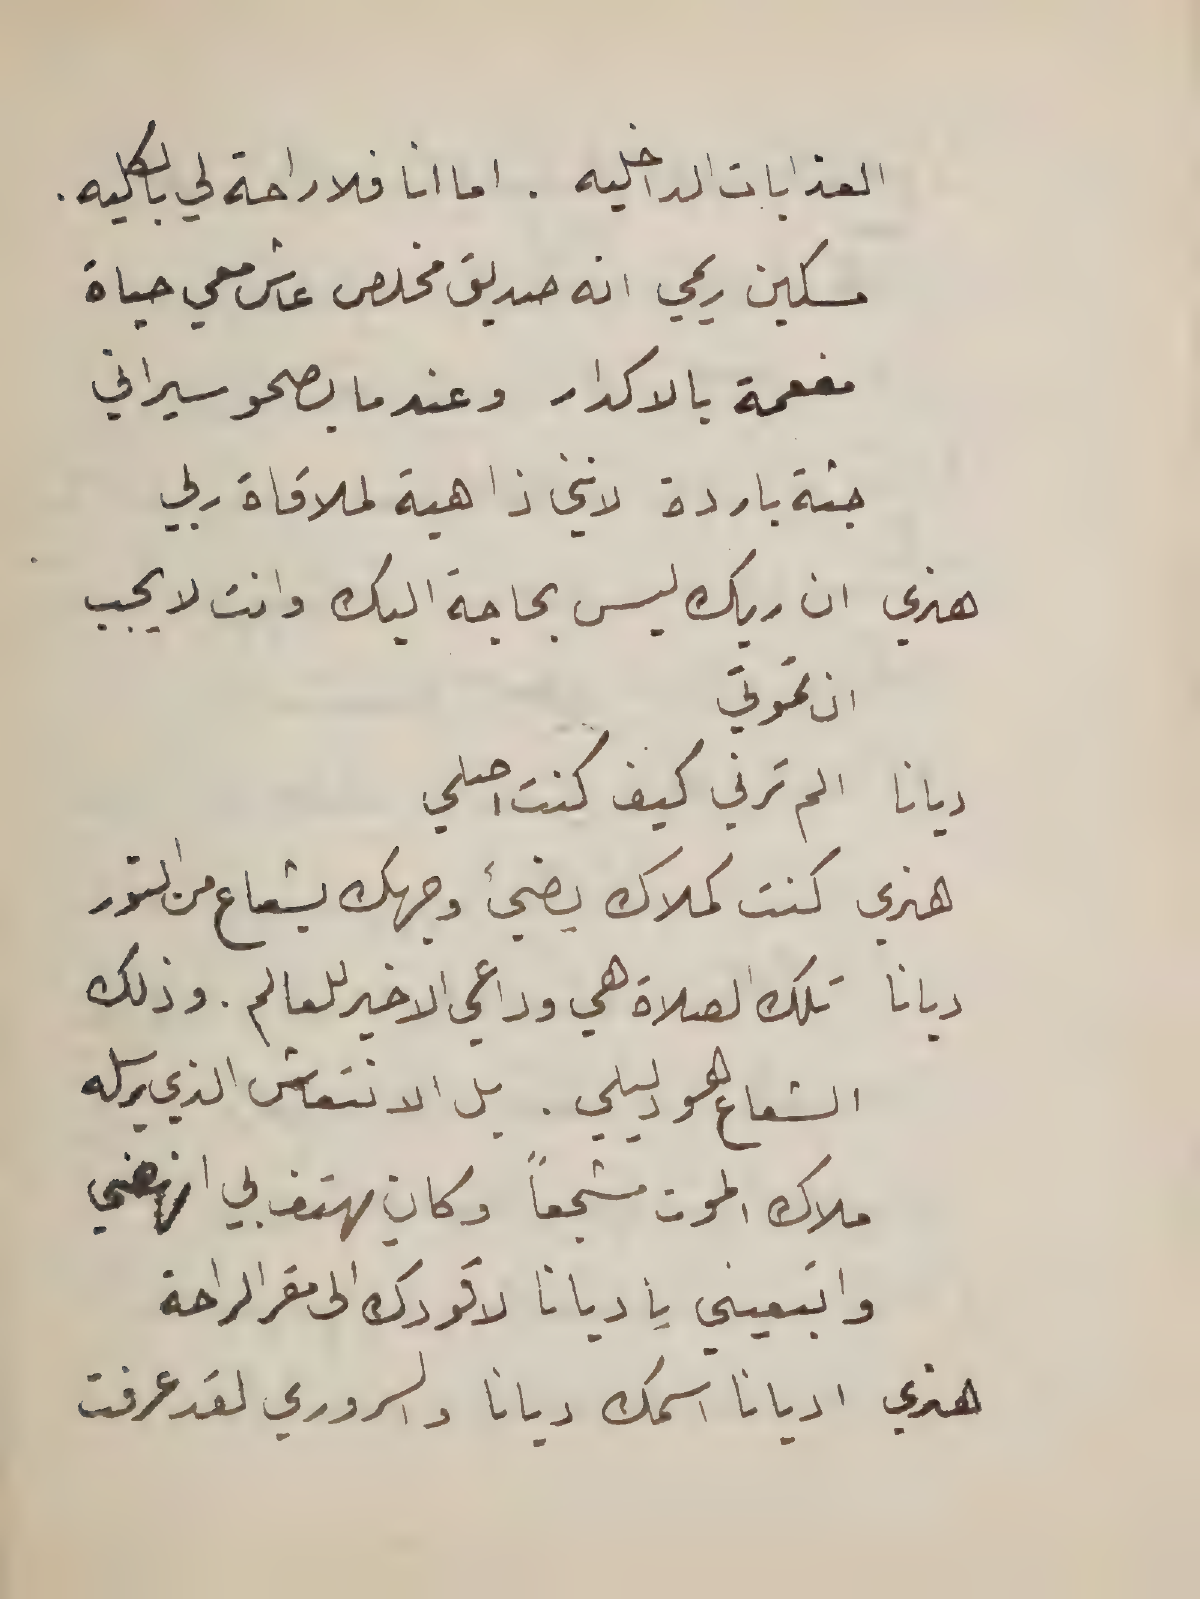 العذابات الداخليه . اما انا فلا راحة لي بالكليه .
مسكين ريمي انه صديق مخلص عاش معي حياة
مفعمة بالاكدار وعندما يصحو سيراني
جثة باردة لانني ذاهبة لملاقاة ربي
هنري ان ربك ليس بحاجة اليك وانت لا يجب
ان تموتي
ديانا الم ترني كيف كنت اصلي
هنري كنت كملاك يضيئ وجهك بشعاع من النور
ديانا تلك الصلاة هي وداعي الاخير للعالم . وذلك
الشعاع هو دليلي . بل الانتعاش الذي يرسله
ملاك الموت مشجعاً وكان يهتف بي انهضي
واتبعيني يا ديانا لاقودك الى مقر الراحة
هنري اديانا اسمك ديانا والسروري لقد عرفت